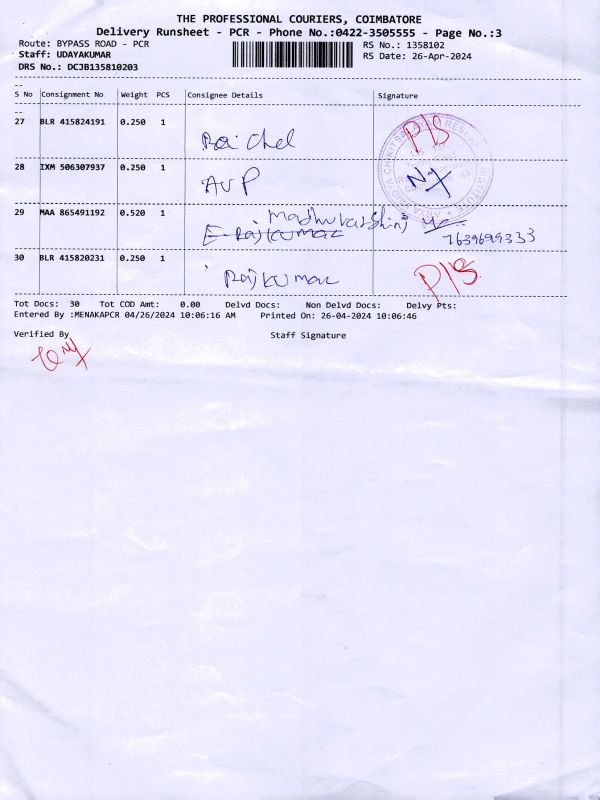 THE PROFESSIONAL COURIERS, COIMBATORE
Delivery Runsheet - PCR - Phone No.:0422-3505555 - Page No.:3
Route: BYPASS ROAD - PCR
RS No.: 1358102
Staff: UDAYAKUMAR
RS Date: 26-Apr-2024
DRS No.: DCJB135810203
S No Consignment No Weight PCS Consignee Details Signature
27 BLR 415824191 0.250 1 P/S
28 IXM 506307937 0.250 1 AVP
29 MAA 865491192 0.520 1
Rajkumar 7639699333
30 BLR 415820231 0.250 1 Rajkumar P/S
Tot Docs: 30 Tot COD Amt: 0.00 Delvd Docs: Non Delvd Docs: Delvy Pts:
Entered By :MENAKAPCR 04/26/2024 10:06:16 AM Printed On: 26-04-2024 10:06:46
Verified By Staff Signature